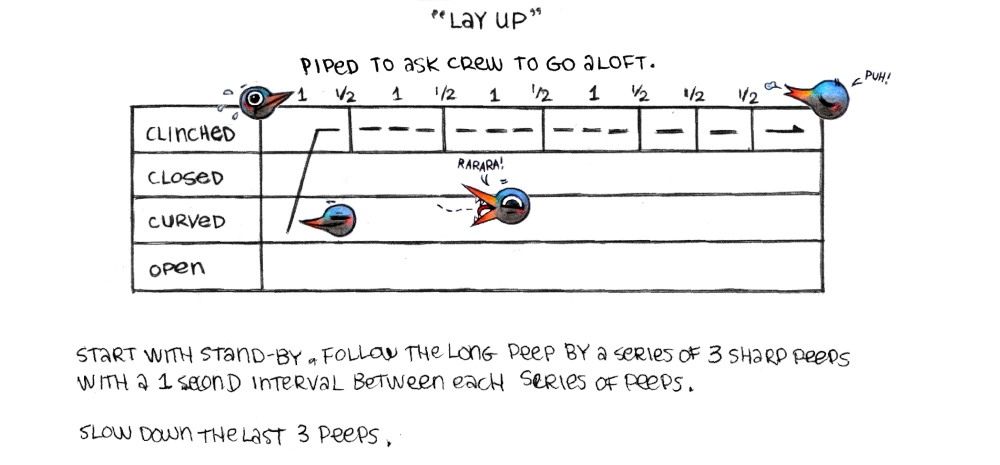 "LAY UP"
PIPED TO ASK CREW TO GO ALOFT.
1 1/2 1 1/2 1 1/2 1 1/2 1/2 1/2
PUH!
CLINCHED
CLOSED
RARARA!
CURVED
OPEN
START WITH STAND-BY. FOLLOW THE LONG PEEP BY A SERIES OF 3 SHARP PEEPS
WITH A 1 SECOND INTERVAL BETWEEN EACH SERIES OF PEEPS.
SLOW DOWN THE LAST 3 PEEPS.